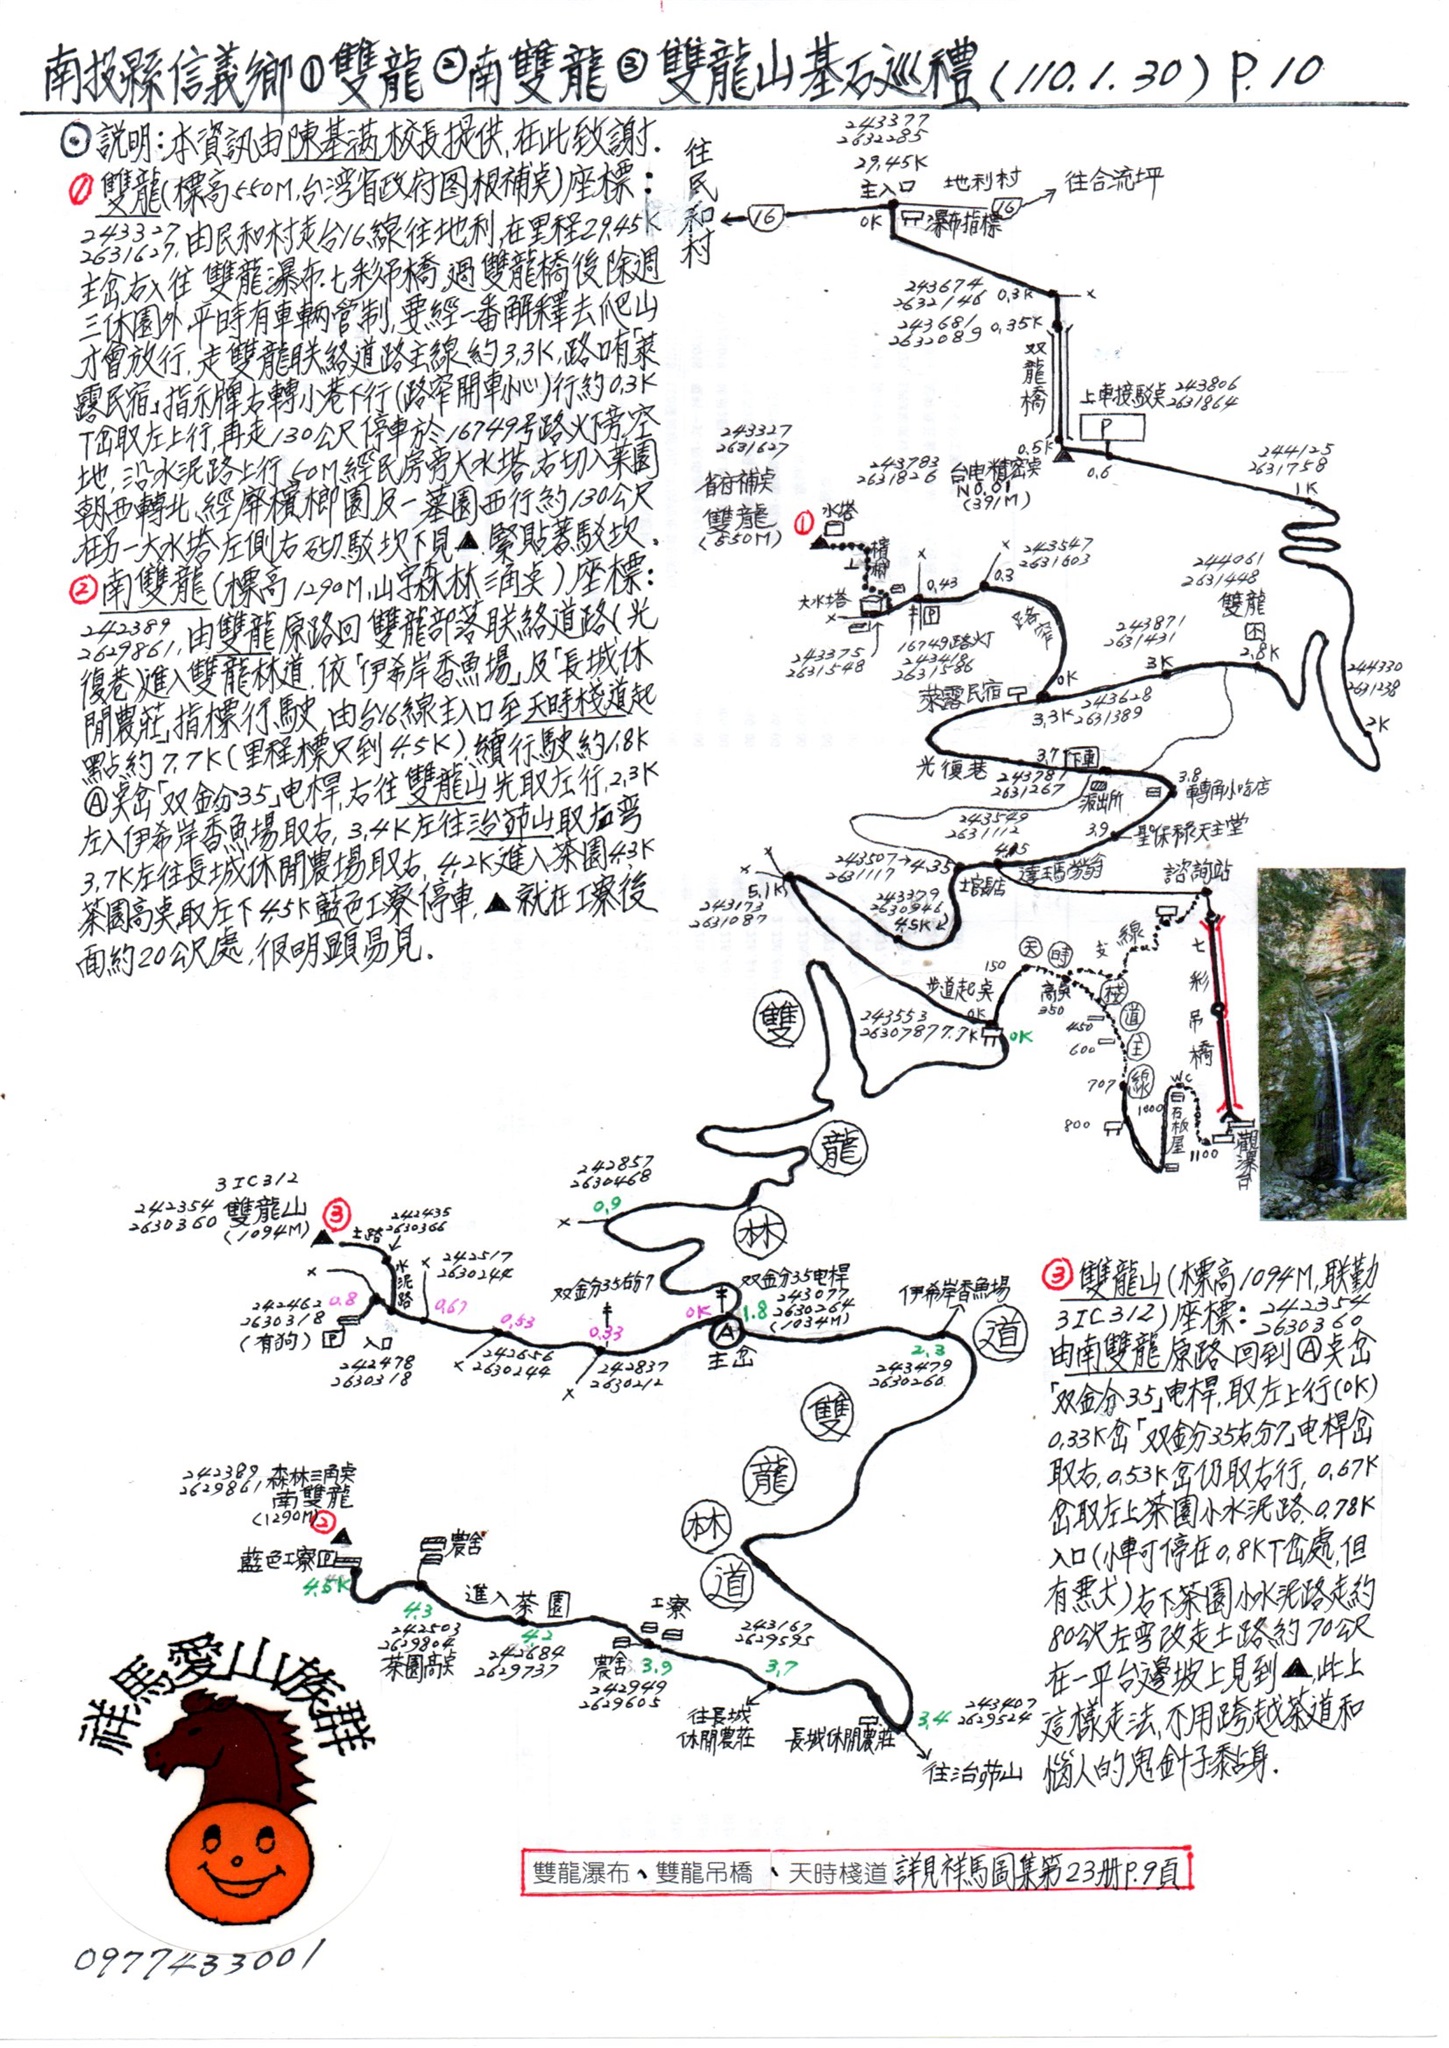 南投縣信義鄉①雙龍②南雙龍③雙龍山基石巡禮(110.1.30) P.10
⊙說明:本資訊由陳基滿校長提供,在此致謝.
①雙龍(標高550M,台湾省政府图根補点)座標:
243327
2631627,由民和村走台16線往地利,在里程29.45K
主岔右入往雙龍瀑布.七彩吊橋,過雙龍橋後除週
三休園外,平時有車輛管制,要經一番解釋去爬山
才會放行,走雙龍联絡道路主線約3.3K,路口有「萊
露民宿」指示牌右轉小巷下行(路窄開車小心)行約0.3K
T岔取左上行,再走130公尺停車於16749号路灯旁空
地,沿水泥路上行60M經民房旁大水塔,右切入菓園
朝西轉北,經屏檳榔園及一墓園西行約130公尺
在另一大水塔左側右切駁坎下見▲,緊貼著駁坎.
②南雙龍(標高1290M,山字森林三角点)座標:
242389
2629861,由雙龍原路回雙龍部落联絡道路(光
復巷)進入雙龍林道,依「伊希岸香魚場」及「長城休
閒農莊」指標行駛,由台16線主入口至天時棧道起
點約7.7K(里程標只到4.5K),續行駛約1.8K
Ⓐ点岔「双金分35」电桿,右往雙龍山先取左行,2.3K
左入伊希岸香魚場取右,3.4K左往治茆山取右彎
3.7K左往長城休閒農場取右,4.2K進入茶園4.3K
茶園高点取左下4.5K藍色工寮停車,▲就在工寮後
面約20公尺處,很明顯易見.
往民和村
16
243377
2632285
29.45K
主入口
0K
地利村
瀑布指標
16
往合流坪
243674
2632146 0.3K
243681
2632089 0.35K
双龍橋
0.5K
上車接駁点 243806
2631864
P
0.6
243783
2631826
台电精密点
NO.01
(391M)
244125
2631758
1K
243327
2631627
省府補点
雙龍
(550M)
①
水塔
檳榔
大水塔
0.43
0.3
243547
2631603
路窄
P
243375
2631548
16749路火丁
243418
2631586
萊露民宿
0K
3.3K
243628
2631389
243871
2631431
3K
244061
2631448
雙龍
2.8K
244330
2631238
2K
光復巷
3.7
下車
243787
2631267
派出所
3.8
轉角小吃店
3.9
聖保祿天主堂
243549
2631112
243507
2631117
4.35
4.15
達瑪勞翁
諮詢站
5.1K
243173
2631087
243379
2630946
4.5K
步道起点
0K
243553
2630787 7.7K
0K
150
天時棧道主線
高点
350
450
600
707
800
1000
WC
石板屋
1100
支線
七彩吊橋
觀瀑台
雙龍林道
242857
2630468
0.9
3IC312
242354
2630360
雙龍山
(1094M)
③
土路
242435
2630366
水泥路
242517
2630244
0.8
0.67
0.53
0.33
0K
242462
2630318
(有狗)
P
入口
242478
2630318
242656
2630244
242837
2630212
双金分35右分7
双金分35电桿
243077
2630264
(1034M)
1.8
Ⓐ
主岔
伊希岸香魚場
2.3
243479
2630266
雙龍林道
242389
2629861
森林三角点
南雙龍
(1290M)
②
藍色工寮
P
4.5K
農舍
4.3
242503
2629804
茶園高点
進入茶園
4.2
242684
2629737
工寮
農舍
3.9
242949
2629605
243167
2629595
3.7
往長城
休閒農莊
長城休閒農莊
3.4
243407
2629524
往治茆山
③雙龍山(標高1094M,联勤
3IC312)座標: 242354
2630360
由南雙龍原路回到Ⓐ点岔
「双金分35」电桿,取左上行(0K)
0.33K岔「双金分35右分7」电桿岔
取右,0.53K岔仍取右行,0.67K
岔取左上茶園小水泥路,0.78K
入口(小車可停在0.8KT岔處,但
有惡犬)右下茶園小水泥路走約
80公尺左彎改走土路,約70公尺
在一平台邊坡上見到▲,此上
這樣走法,不用跨越茶道和
惱人的鬼針子黏身.
祥馬愛山族群
0977433001
雙龍瀑布、雙龍吊橋、天時棧道詳見祥馬圖集第23册P.9頁